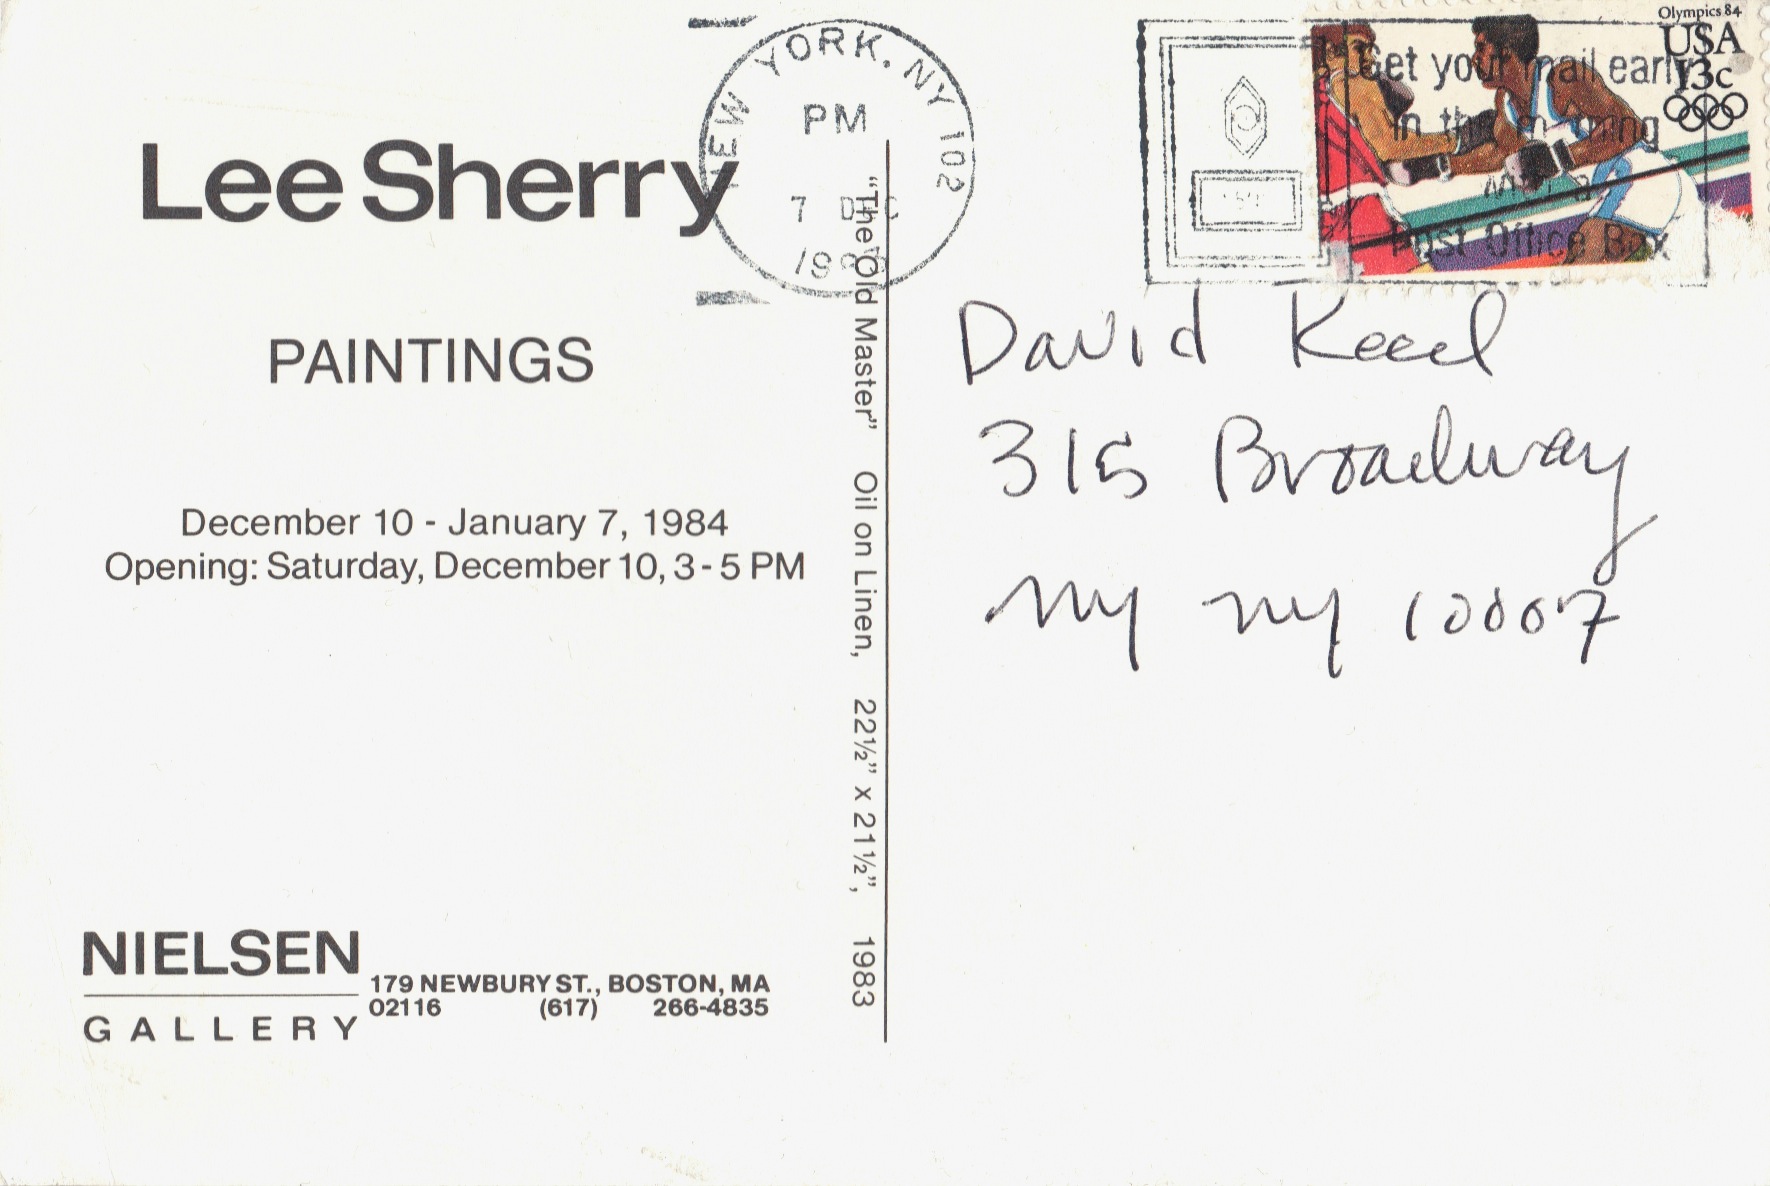 Lee Sherry
PAINTINGS
December 10 - January 7, 1984
Opening: Saturday, December 10, 3-5 PM
NIELSEN
GALLERY
179 NEWBURY ST., BOSTON, MA
02116 (617) 266-4835
“The Old Master” Oil on Linen, 22½” x 21½”, 1983
NEW YORK, NY 102
PM
7 DEC
Olympics 84
USA
13c
Get your mail early
in the morning
Post Office Box
David
315 Broadway
NY NY 10007